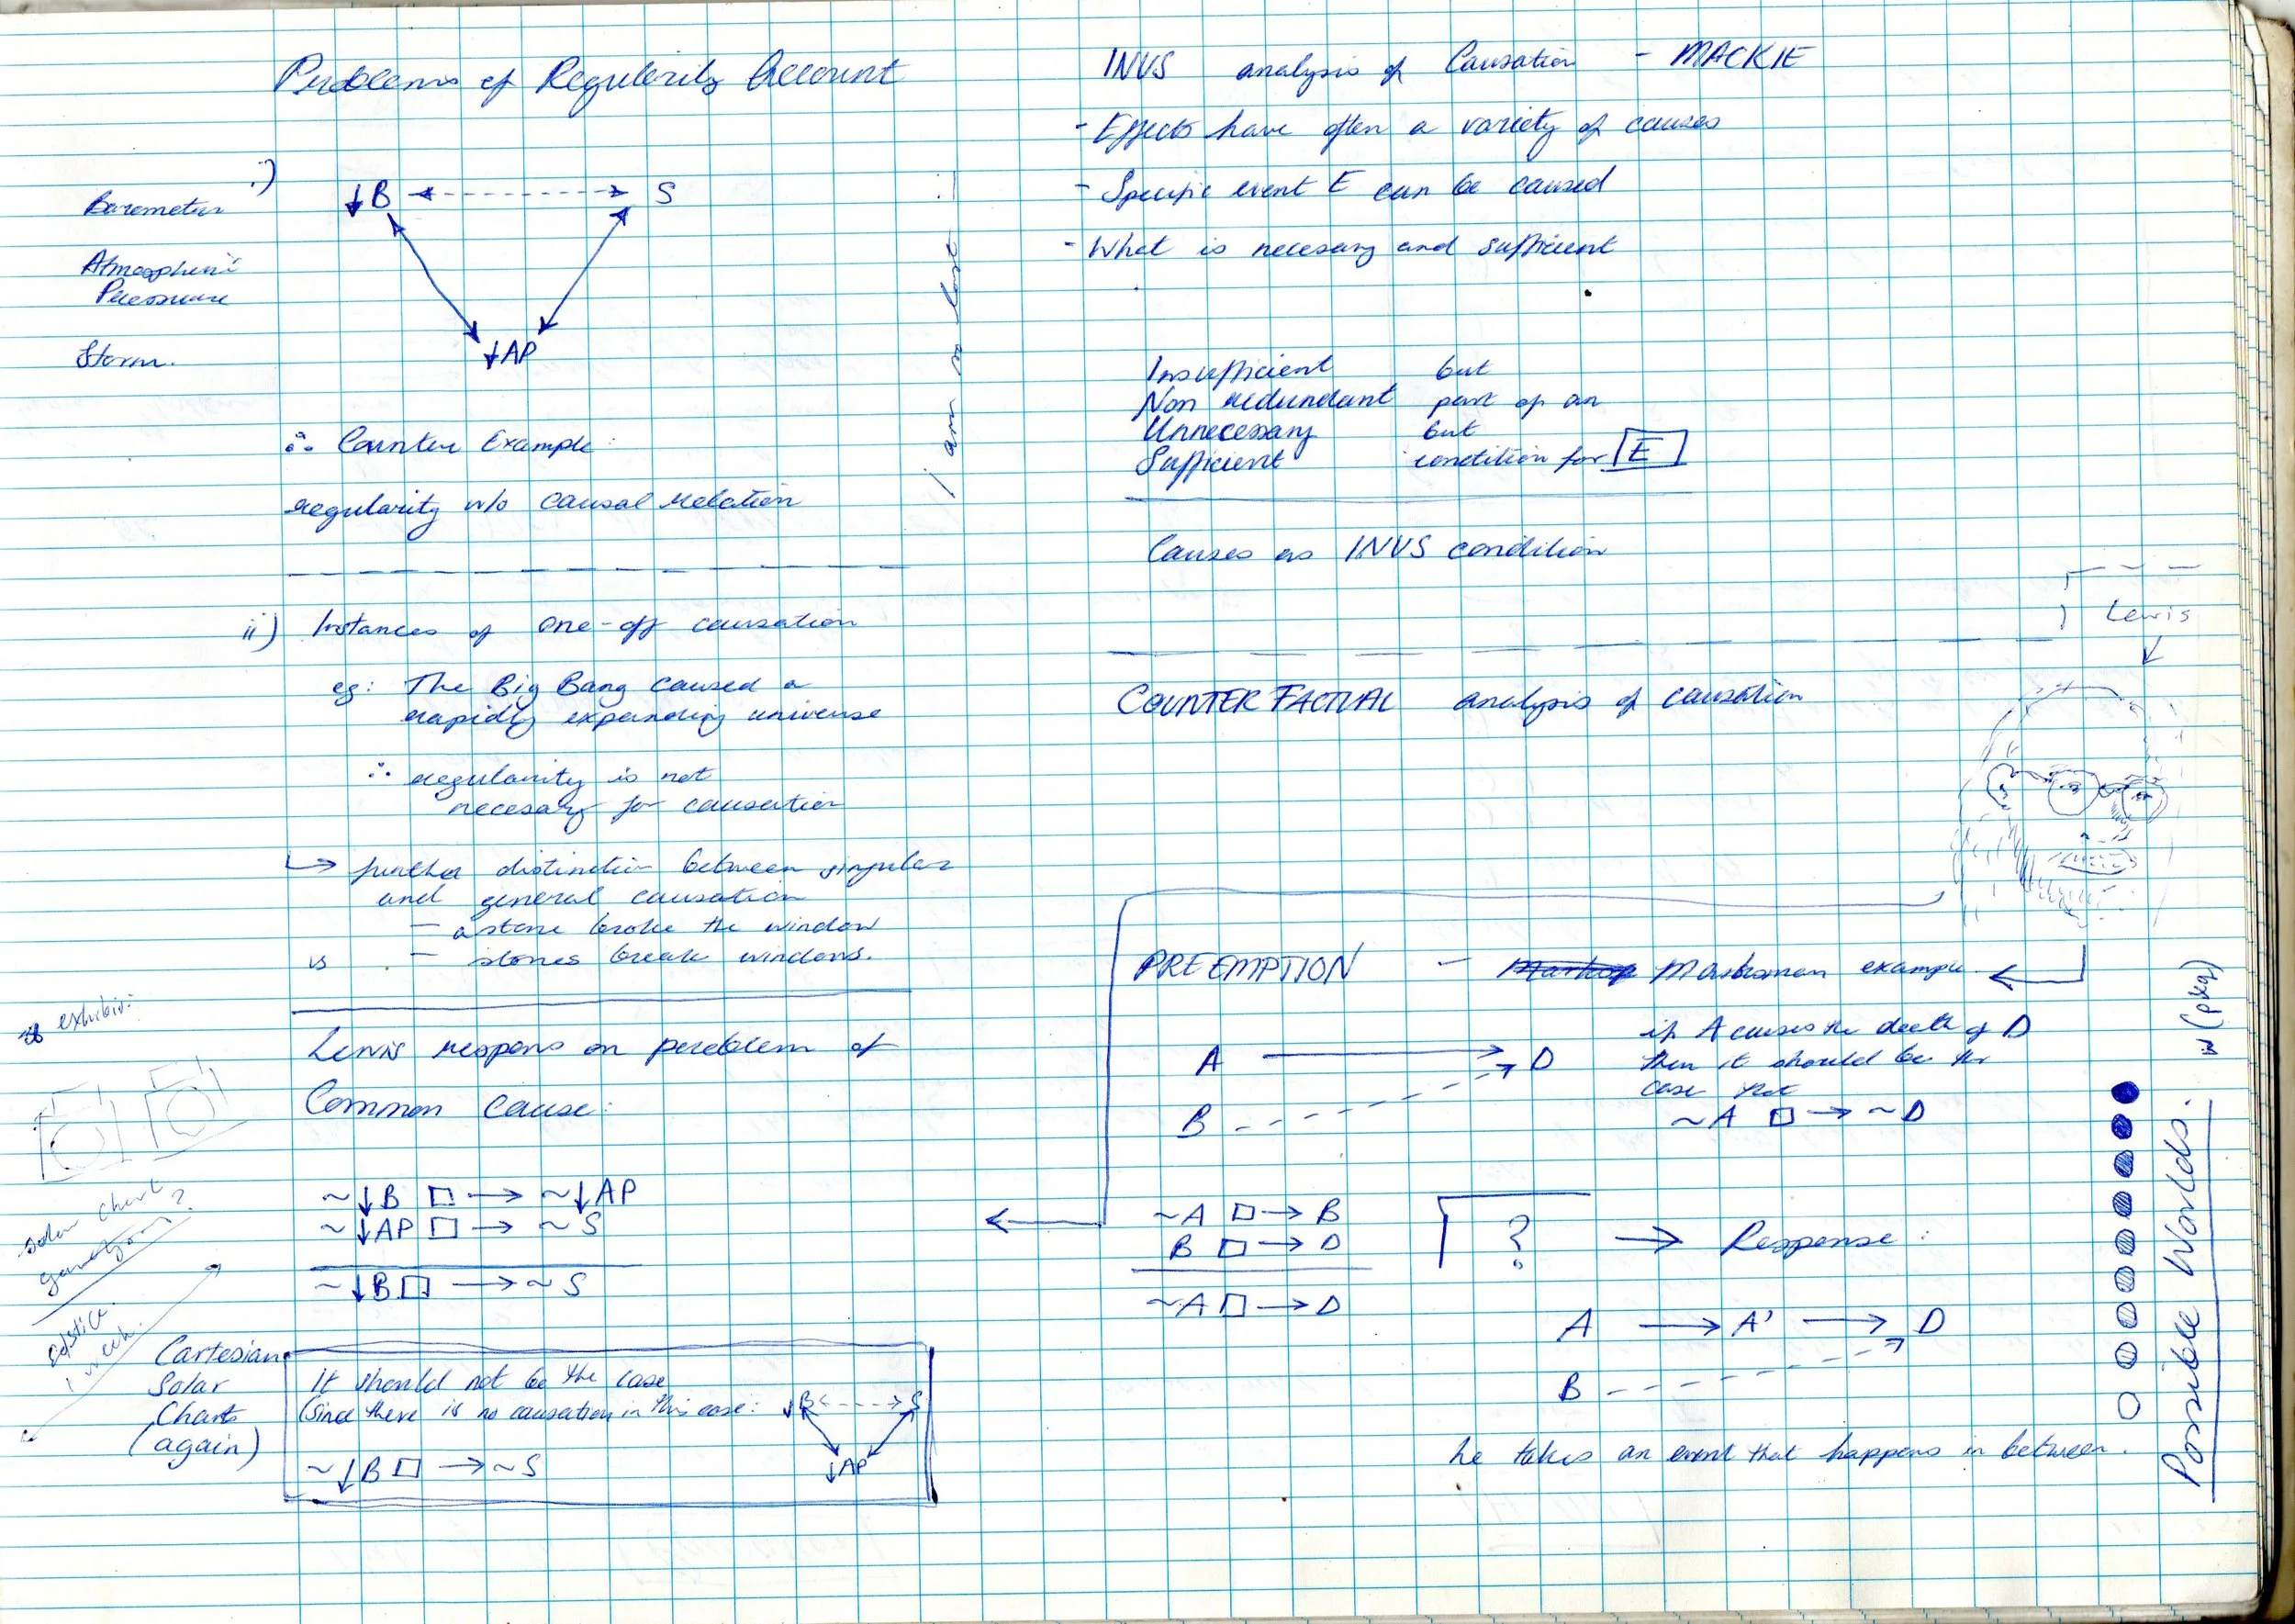 Problems of Regularity Account
i)
↓B S
Barometer
Atmospheric
Pressure
Storm.
↓AP
∴ Counter Example:
regularity w/o causal relation
ii) Instances of one-off causation
eg: The Big Bang caused a
rapidly expanding universe
∴ regularity is not
necesary for causation
↳ further distinction between singular
and general causation
— a stone broke the window
vs — stones break windows.
exhibit:
Lewis respons on problem of
Common Cause:
~↓B □→ ~↓AP
~↓AP □→ ~S
~↓B □→ ~S
solar chart
1 week.
Cartesian
Solar
Charts
(again)
It should not be the case
(since there is no causation in this case: ↓B S
↓AP
~↓B □→ ~S
I am so lost :)
INUS analysis of Causation - MACKIE
- Effects have often a variety of causes
- Specific event E can be caused
- What is necesary and sufficient
Insufficient but
Non redundant part of an
Unnecessary but
Sufficient condition for E
Causes as INUS condition
Lewis
COUNTERFACTUAL analysis of causation
PREEMPTION - Marksman example.
A → D
B
if A causes the death of D
then it should be the
case that
~A □→ ~D
~A □→ B
B □→ D
~A □→ D
? → Response:
A → A' → D
B
he takes an event that happens in between.
Possible Worlds.